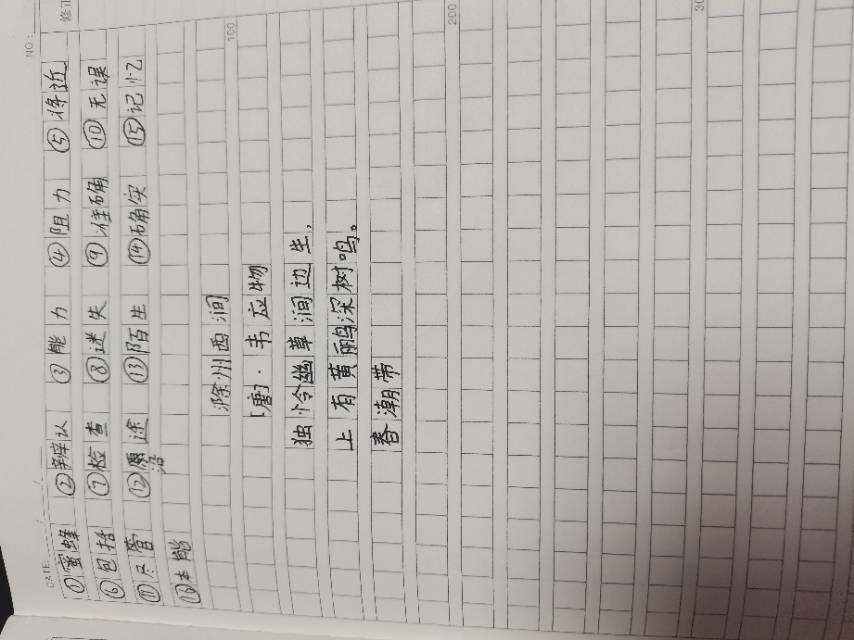 NO:
DATE 修正
①蜜蜂 ②辨认 ③能力 ④阻力 ⑤将近
⑥包括 ⑦检查 ⑧迷失 ⑨准确 ⑩无误
⑪尽管 ⑫原途 ⑬陌生 ⑭确实 ⑮记忆
沿
⑯本能
100
滁州西涧
[唐]·韦应物
独怜幽草涧边生,
上有黄鹂深树鸣。
春潮带
200
30